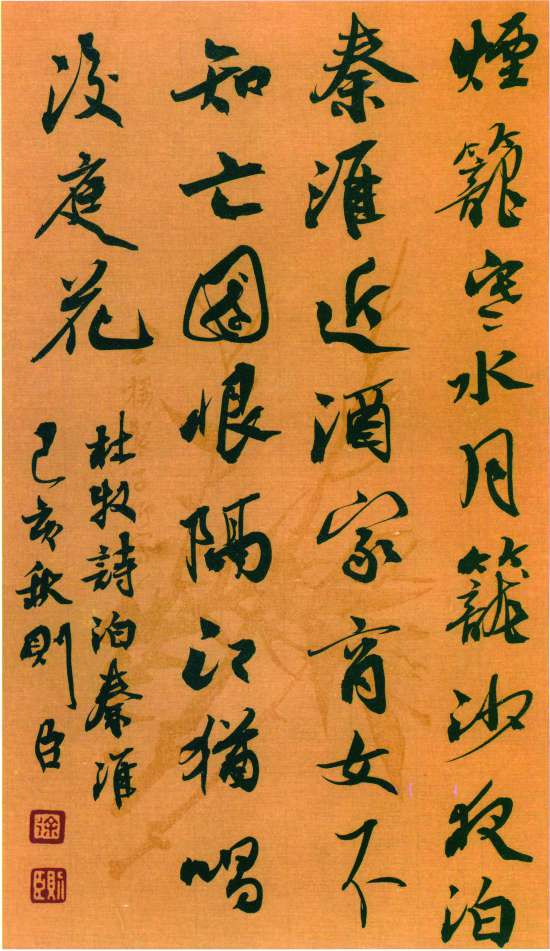 煙籠寒水月籠沙夜泊
秦淮近酒家商女不
知亡國恨隔江猶唱
後庭花
杜牧詩泊秦淮
己亥秋則臣
徐
則臣